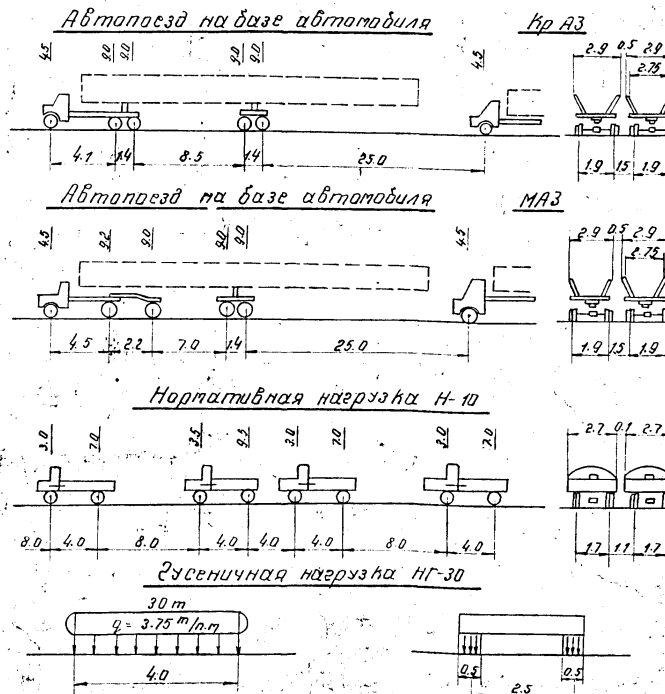 Автопоезд на базе автомобиля КрАЗ
4.5 9.0 9.0 9.0 9.0 4.5
2.9 0.5 2.9
2.75
4.1 1.4 8.5 1.4 25.0
1.9 1.5 1.9
Автопоезд на базе автомобиля МАЗ
4.5 9.2 9.0 9.0 9.0 4.5
2.9 0.5 2.9
2.75
4.5 2.2 7.0 1.4 25.0
1.9 1.5 1.9
Нормативная нагрузка Н-10
3.0 7.0 3.5 9.5 3.0 7.0 3.0 7.0
2.7 0.1 2.7
8.0 4.0 8.0 4.0 4.0 4.0 8.0 4.0
1.7 1.1 1.7
Гусеничная нагрузка НГ-30
30 т
q = 3.75 т/п.м
0.5 0.5
4.0
2.5